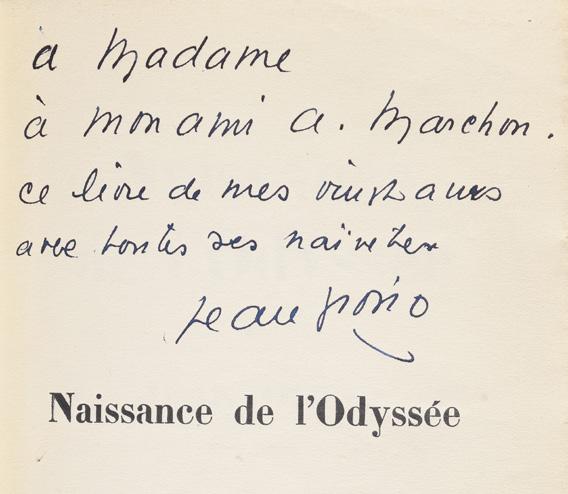 a Madame
à mon ami A. Marchon.
ce livre de mes vingt ans
avec toutes ses naïvetés
Jean Giono
Naissance de l'Odyssée